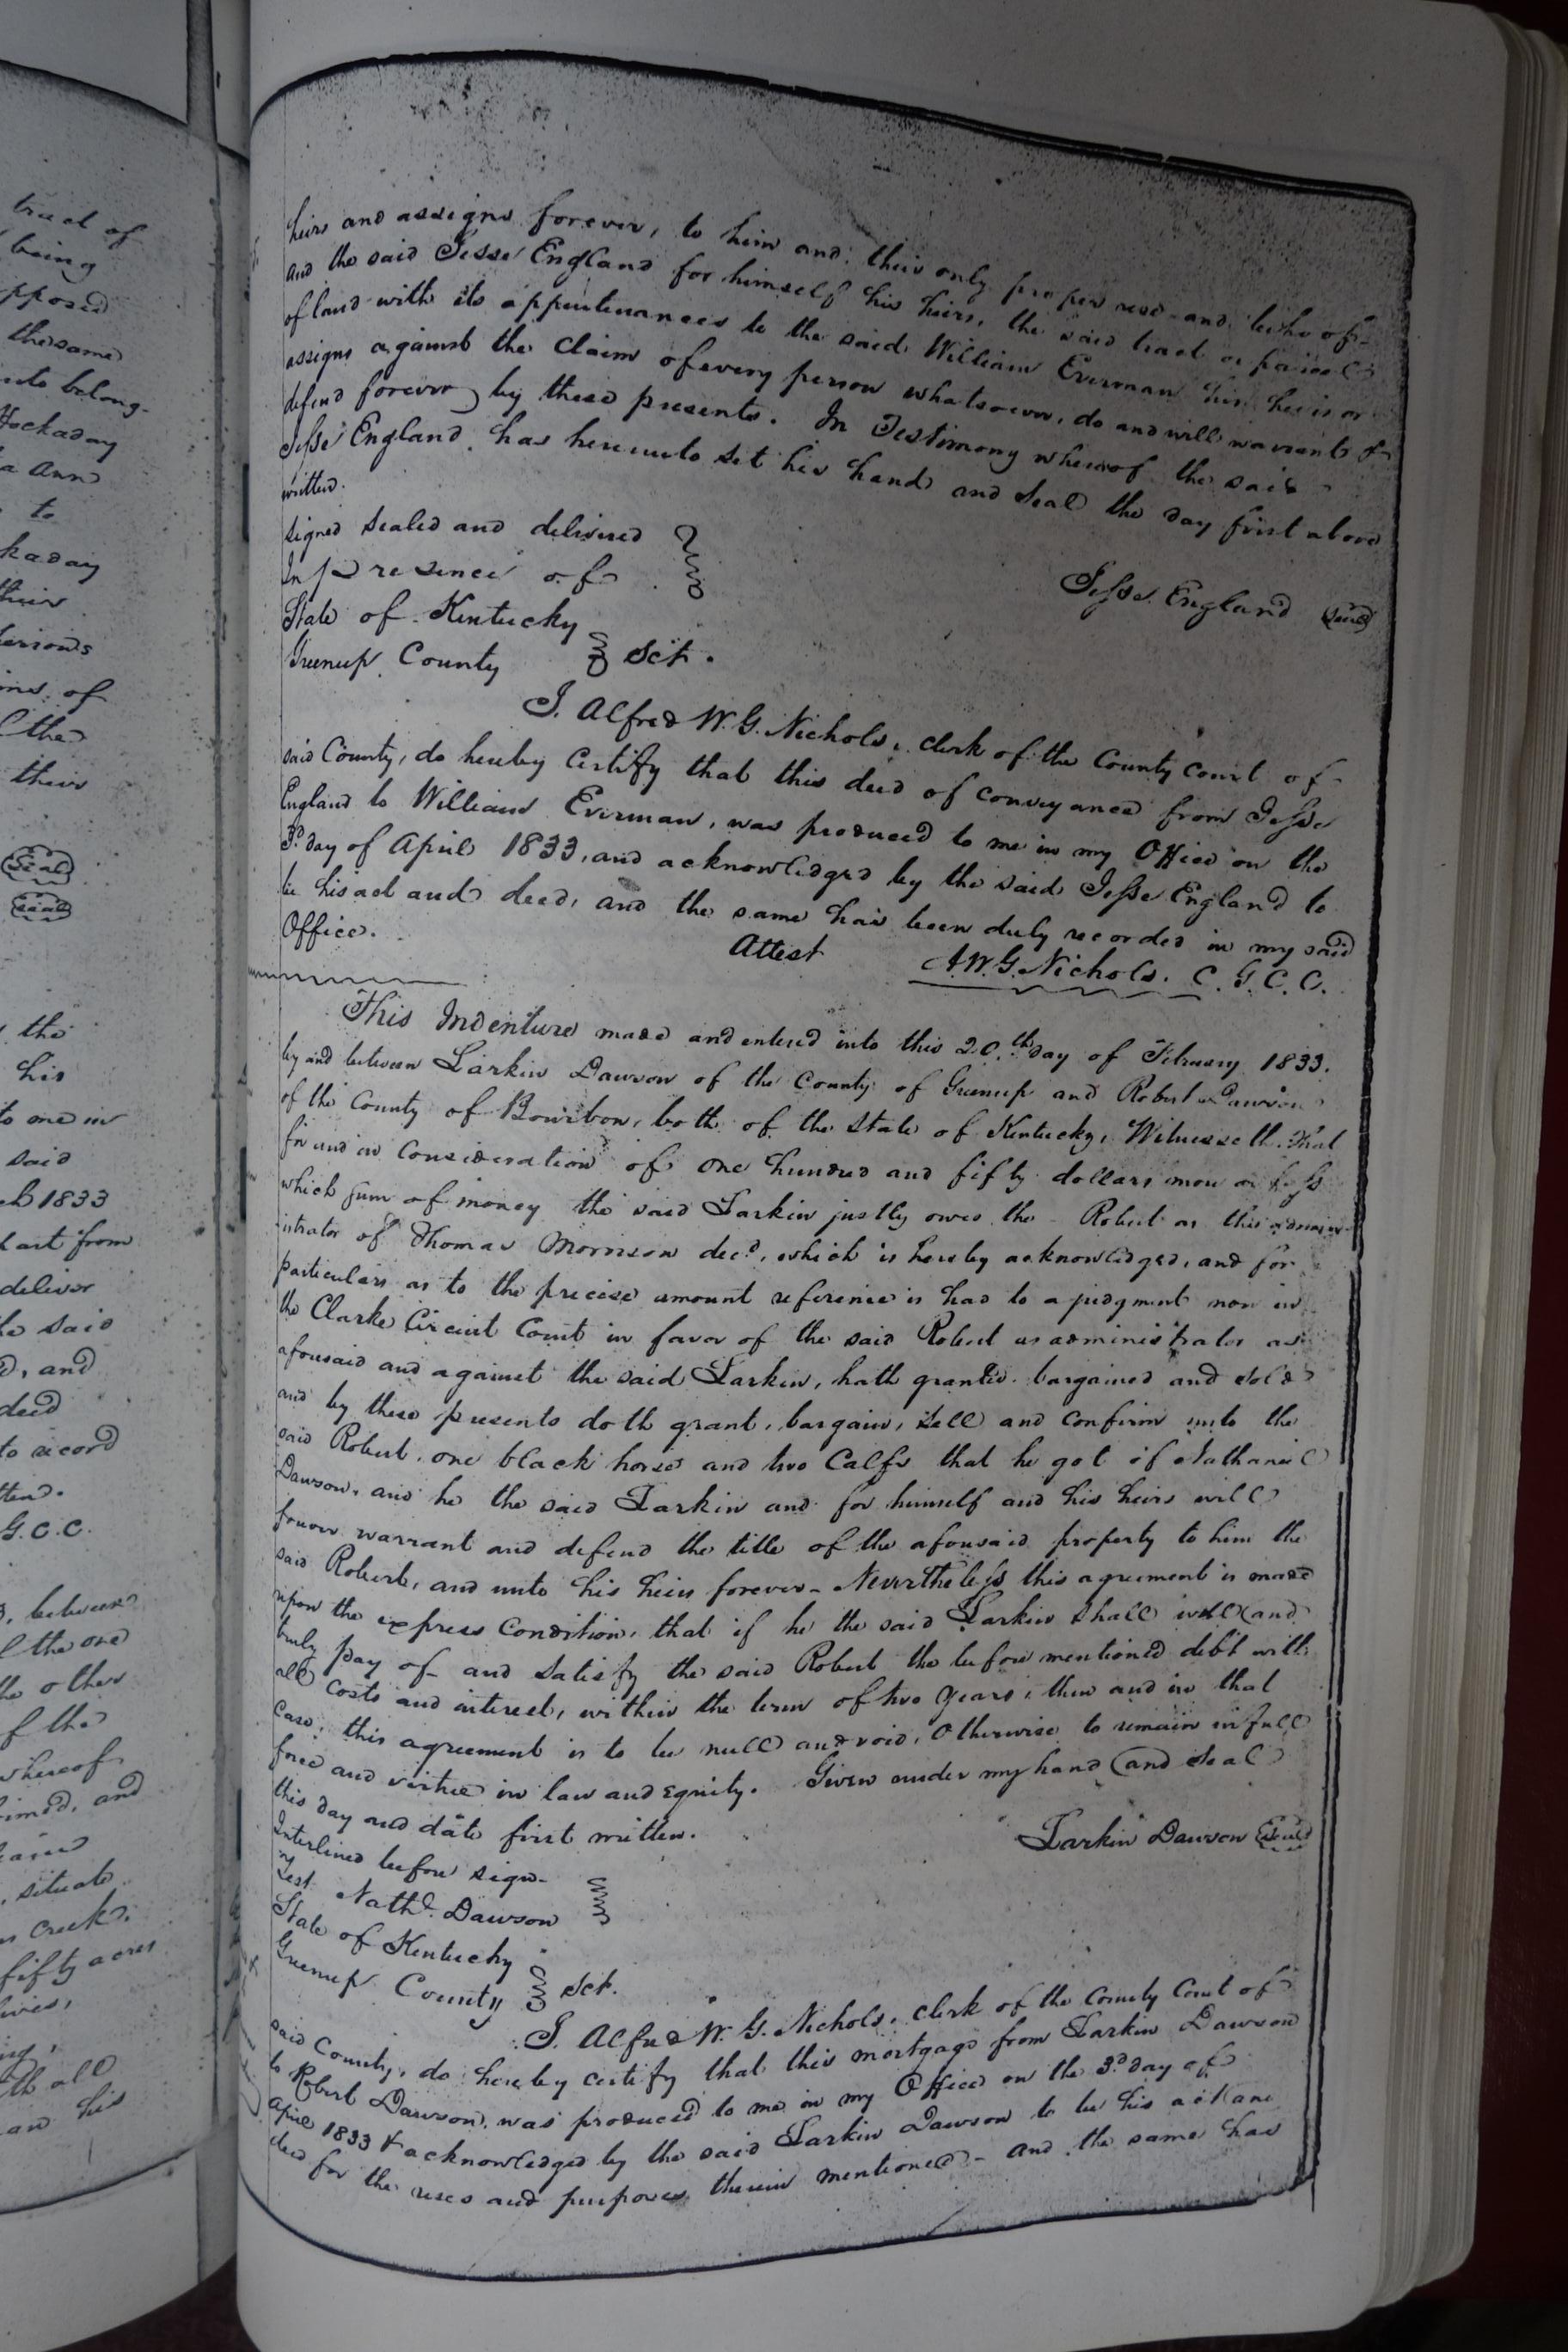 truct of
being
pposed
the same
nto belong-
Hockaday
a Ann
to
kaday
their
persons
ons of
the
their
Seal
Seal
the
his
to one in
said
ch 1833
hart from
deliver
he said
d, and
deed
to record
tten.
G.C.C.
3, between
f the one
the other
f the
whereof
imed, and
situate
creek.
fifty acres
th all
an his
heirs and assigns forever, to him and their only proper use and behoof
and the said Jesse England for himself his heirs, the said tract or parcel
of land with its appurtenances to the said William Everman his heirs or
assigns against the claim of every person whatsoever, do and will warrant &
defend forever by these presents. In Testimony whereof the said
Jesse England has hereunto set his hand and seal the day first above
written.
signed sealed and delivered
In presence of
Jesse England Seal
State of Kentucky
Greenup County Sct.
I. Alfred W. G. Nichols, clerk of the County court of
said County, do hereby certify that this deed of conveyance from Jesse
England to William Everman, was produced to me in my Office on the
3d. day of April 1833, and acknowledged by the said Jesse England to
be his act and deed, and the same has been duly recorded in my said
Office.
Attest A.W.G. Nichols. C.G.C.C.
This Indenture made and entered into this 20.th day of February 1833.
by and between Larkin Dawson of the County of Greenup and Robert Dawson
of the County of Bourbon, both of the State of Kentucky, Witnesseth. That
for and in Consideration of one hundred and fifty dollars more or less
which sum of money the said Larkin justly owes the Robert as this admin-
istrator of Thomas Morrison decd, which is hereby acknowledged, and for
particulars as to the precise amount reference is had to a judgment now in
the Clarke Circuit Court in favor of the said Robert as administrator as
aforesaid and against the said Larkin, hath granted. bargained and sold
and by these presents doth grant, bargain, sell and confirm unto the
said Robert, one black horse and two Calfs that he got of Nathaniel
Dawson, and he the said Larkin and for himself and his heirs will
forever warrant and defend the title of the aforesaid property to him the
said Robert, and unto his heirs forever - Nevertheless this agreement is made
upon the express Condition, that if he the said Larkin shall well and
truly pay of and satisfy the said Robert the before mentioned debt with
all costs and interest, within the term of two years, then and in that
case, this agreement is to be null and void, Otherwise to remain in full
force and virtue in law and Equity. Given under my hand and seal
this day and date first written.
Larkin Dawson Seal
Interlined before sign-
Test Nathl. Dawson
State of Kentucky
Greenup County Sct.
I. Alfred W. G. Nichols, clerk of the County Court of
said County, do hereby certify that this mortgage from Larkin Dawson
to Robert Dawson, was produced to me in my Office on the 3d day of
April 1833 & acknowledged by the said Larkin Dawson to be his act and
deed for the uses and purposes therein mentioned - and the same has